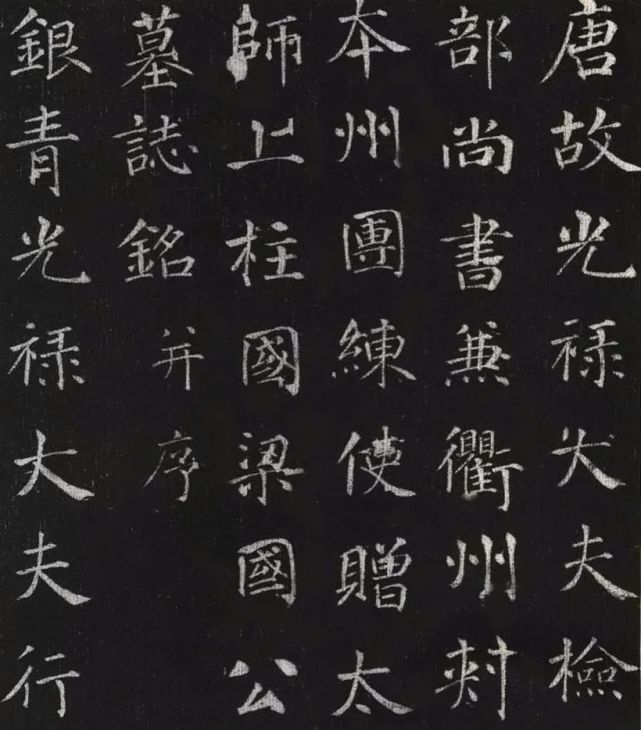 唐故光禄大夫檢
部尚書兼衢州刺
本州團練使贈太
師上柱國梁國公
墓誌銘并序
銀青光禄大夫行